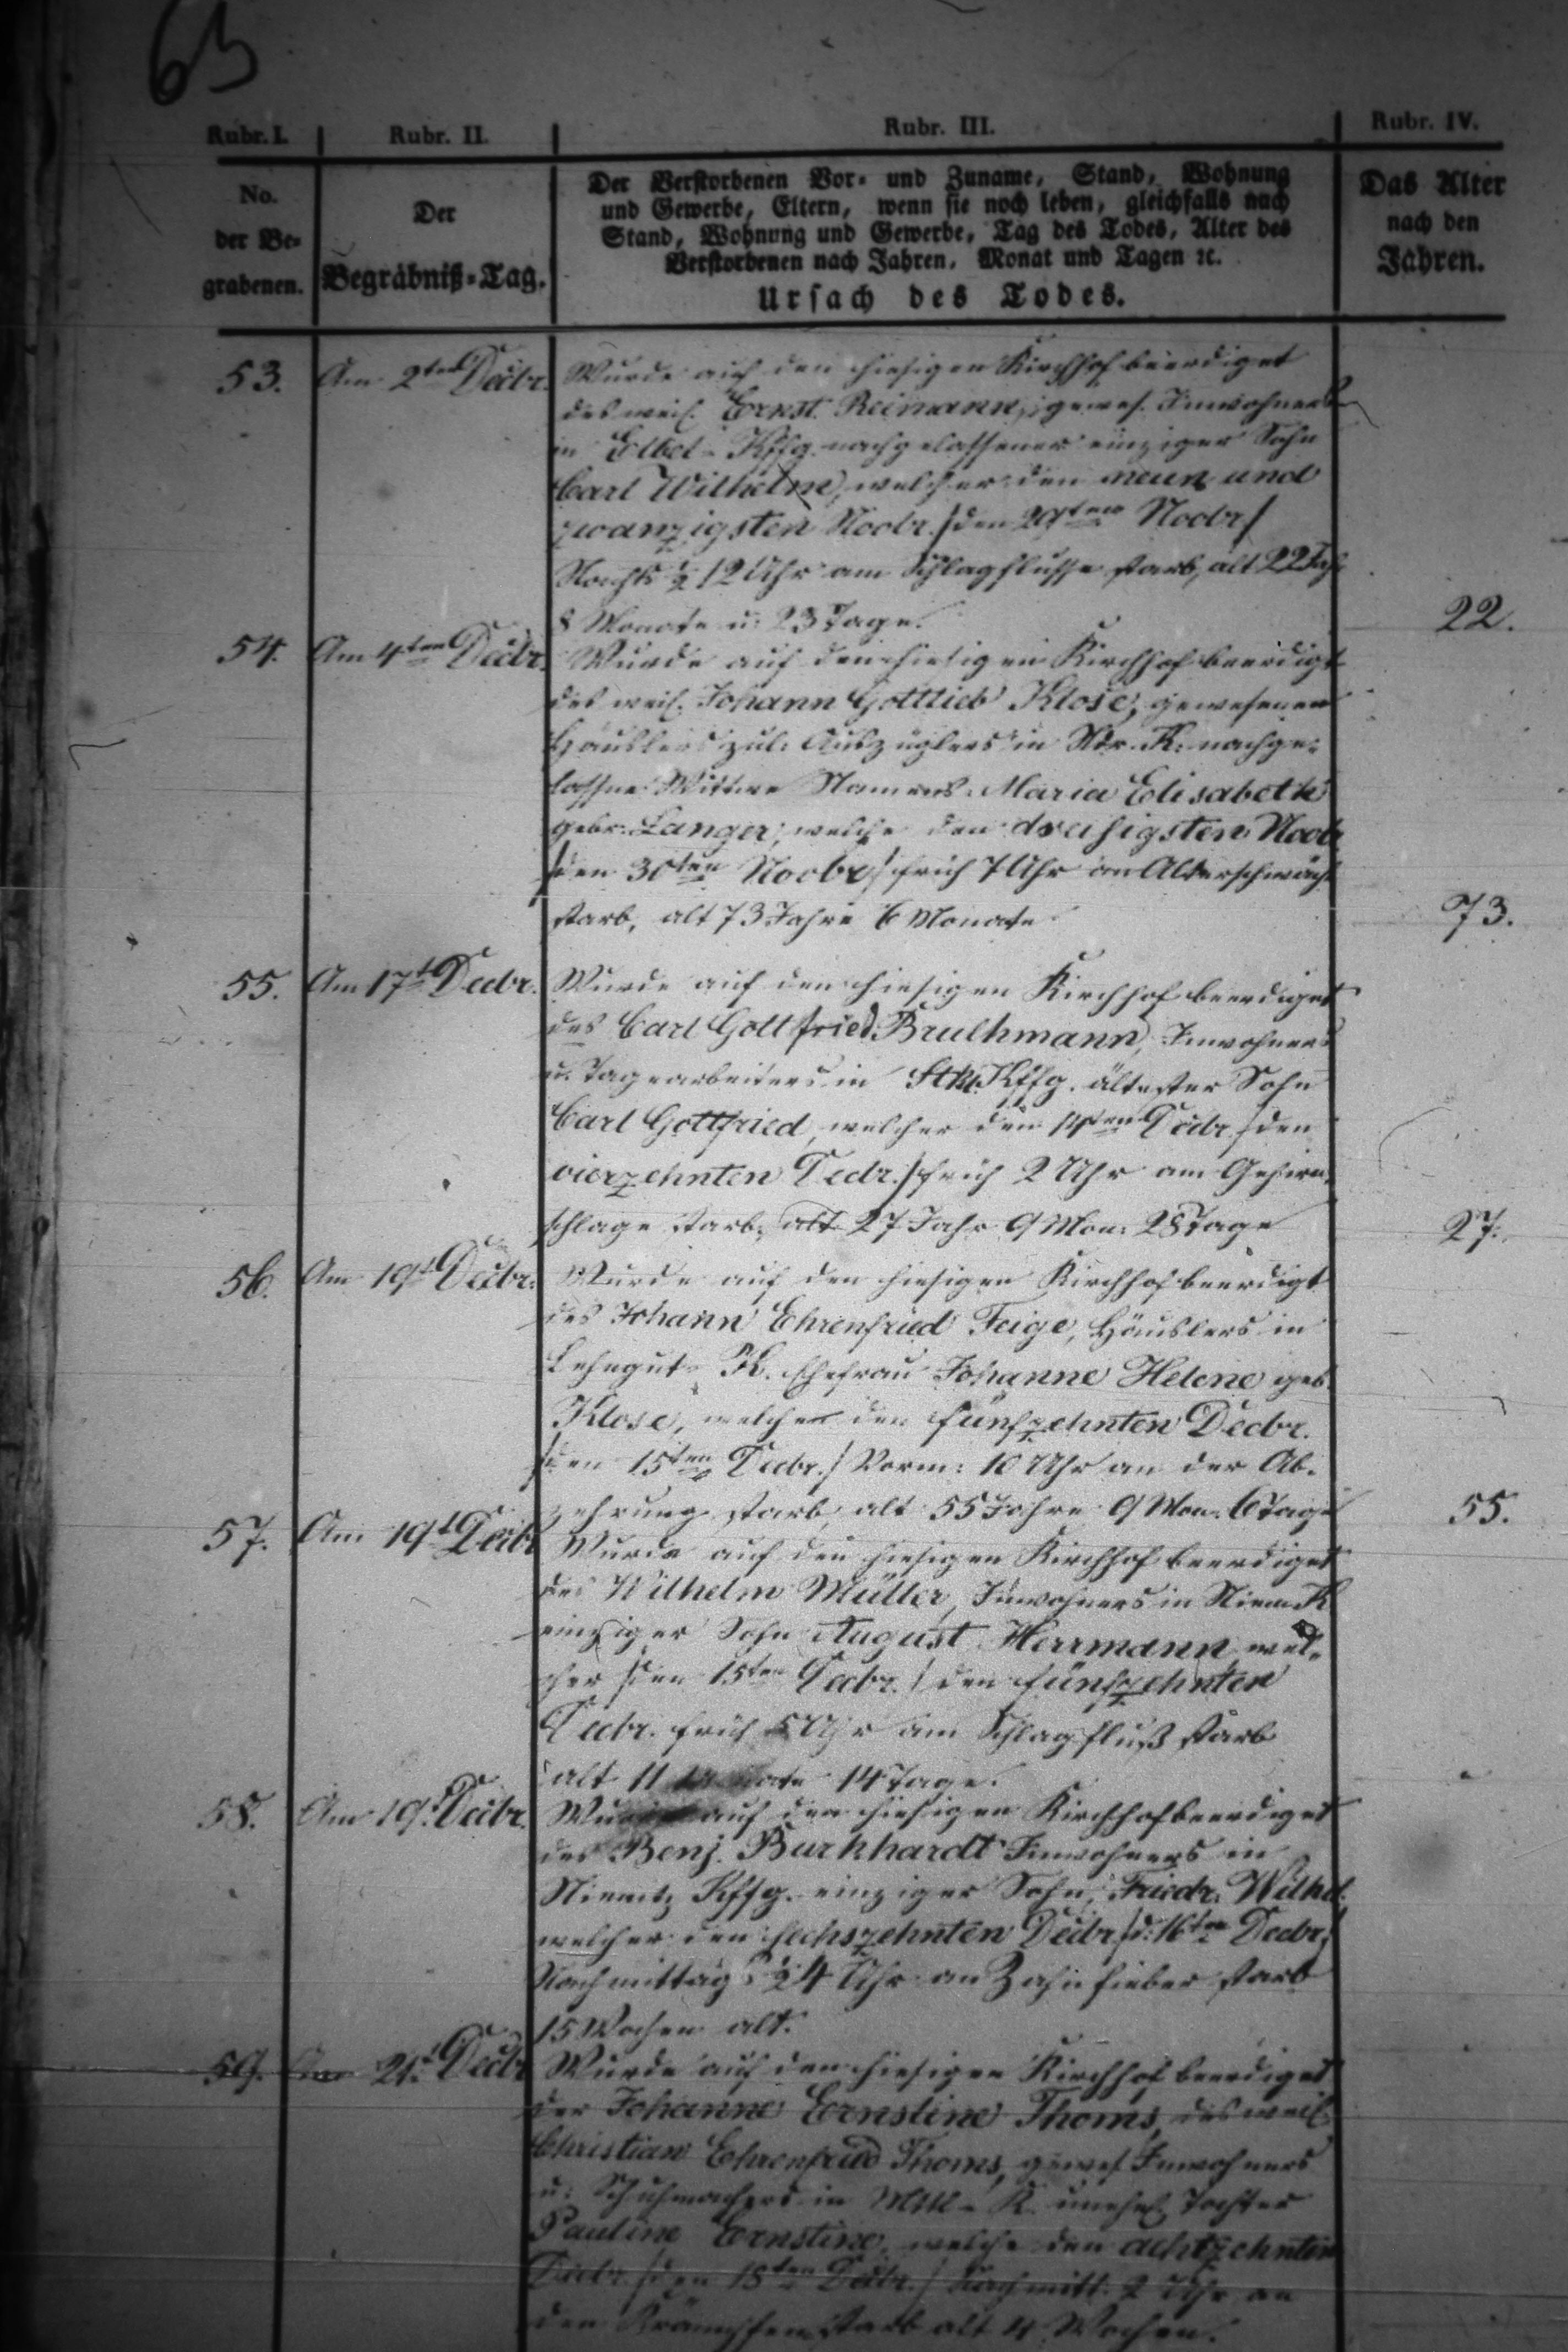 63
Rubr. I. Rubr. II. Rubr. III. Rubr. IV.
No. der Be-grabenen.
Der Begräbniß-Tag.
Der Verstorbenen Vor- und Zuname, Stand, Wohnung
und Gewerbe, Eltern, wenn sie noch leben, gleichfalls nach
Stand, Wohnung und Gewerbe, Tag des Todes, Alter des
Verstorbenen nach Jahren, Monat und Tagen ꝛc.
Ursach des Todes.
Das Alter
nach den
Jahren.
53. Am 2ten Decbr. Wurde auf den hiesigen Kirchhof beerdiget
des weil. Ernst Reimann, gewes. Inwohners
in Elbel-Kffg. nachgelassener einziger Sohn
Carl Wilhelm, welcher den neun und
zwanzigsten Novbr. /den 29ten Novbr/
Nachts ½ 12 Uhr am Schlagflusse starb, alt 22 Jah
8 Monate u. 23 Tage. 22.
54. Am 4ten Decbr. Wurde auf den hiesigen Kirchhof beerdigt
des weil. Johann Gottlieb Klose, gewesenen
Häuslers zul. Auszüglers in Ndr. K. nachge-
lassne Wittwe Namens Maria Elisabeth
gebr. Langer, welche den dreißigsten Novbr
/den 30ten Novbr/ früh 7 Uhr an Altersschwäche
starb, alt 73 Jahre 6 Monate 73.
55. Am 17t Decbr. Wurde auf den hiesigen Kirchhof beerdiget
des Carl Gottfried Brulhmann, Inwohners
u. Tagearbeiters in Kffg. ältester Sohn
Carl Gottfried, welcher den 14ten Decbr. /den
vierzehnten Decbr./ früh 2 Uhr am Gehirn-
schlage starb, alt 27 Jahr 9 Mon. 28 Tage 27.
56. Am 19t Decbr. Wurde auf den hiesigen Kirchhof beerdigt
des Johann Ehrenfried Feige, Häuslers in
Lehngut-K. Ehefrau Johanne Helene geb.
Klose, welche den fünfzehnten Decbr.
/den 15ten Decbr./ Vorm: 10 Uhr an der Ab-
zehrung starb, alt 55 Jahre 9 Mon. 6 Tage 55.
57. Am 19t Decbr Wurde auf den hiesigen Kirchhof beerdiget
des Wilhelm Müller, Inwohners in K
einziger Sohn August Herrmann wel-
cher /den 15ten Decbr./ den fünfzehnten
Decbr. früh 5 Uhr am Schlagfluß starb
alt 11 Monate 14 Tage.
58. Am 19t Decbr. Wurde auf den hiesigen Kirchhof beerdiget
des Benj. Burkhardt Inwohners in
Kffg. einziger Sohn, Friedr. Wilhel.
welcher den sechszehnten Decbr /d. 16ten Decbr/
Nachmittags ½4 Uhr an Zahnfieber starb
15 Wochen alt.
59. Am 21t Decbr Wurde auf den hiesigen Kirchhof beerdiget
der Johanne Ernstine Thoms, des weil.
Christian Ehrenfried Thoms, gewes. Inwohners
u. Schuhmachers in Mttl-K. unehel. Tochter
Pauline Ernstine, welche den achtzehnten
Decbr. /den 18ten Decbr./ Nachmitt. 2 Uhr an
den Krämpfen starb alt 4 Wochen.